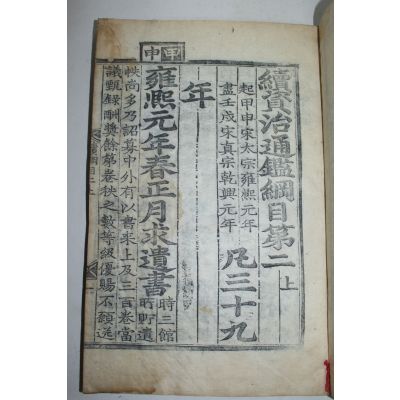 續資治通鑑綱目第二上
起甲申宋太宗雍熙元年
盡壬戌宋真宗乾興元年
凡三十九
年
甲申
雍熙元年春正月求遺書
時三館
所貯遺
帙尚多乃詔募中外有以書來上及三百卷當
議甄錄酬奬餘第卷秩之數等級優賜不願送